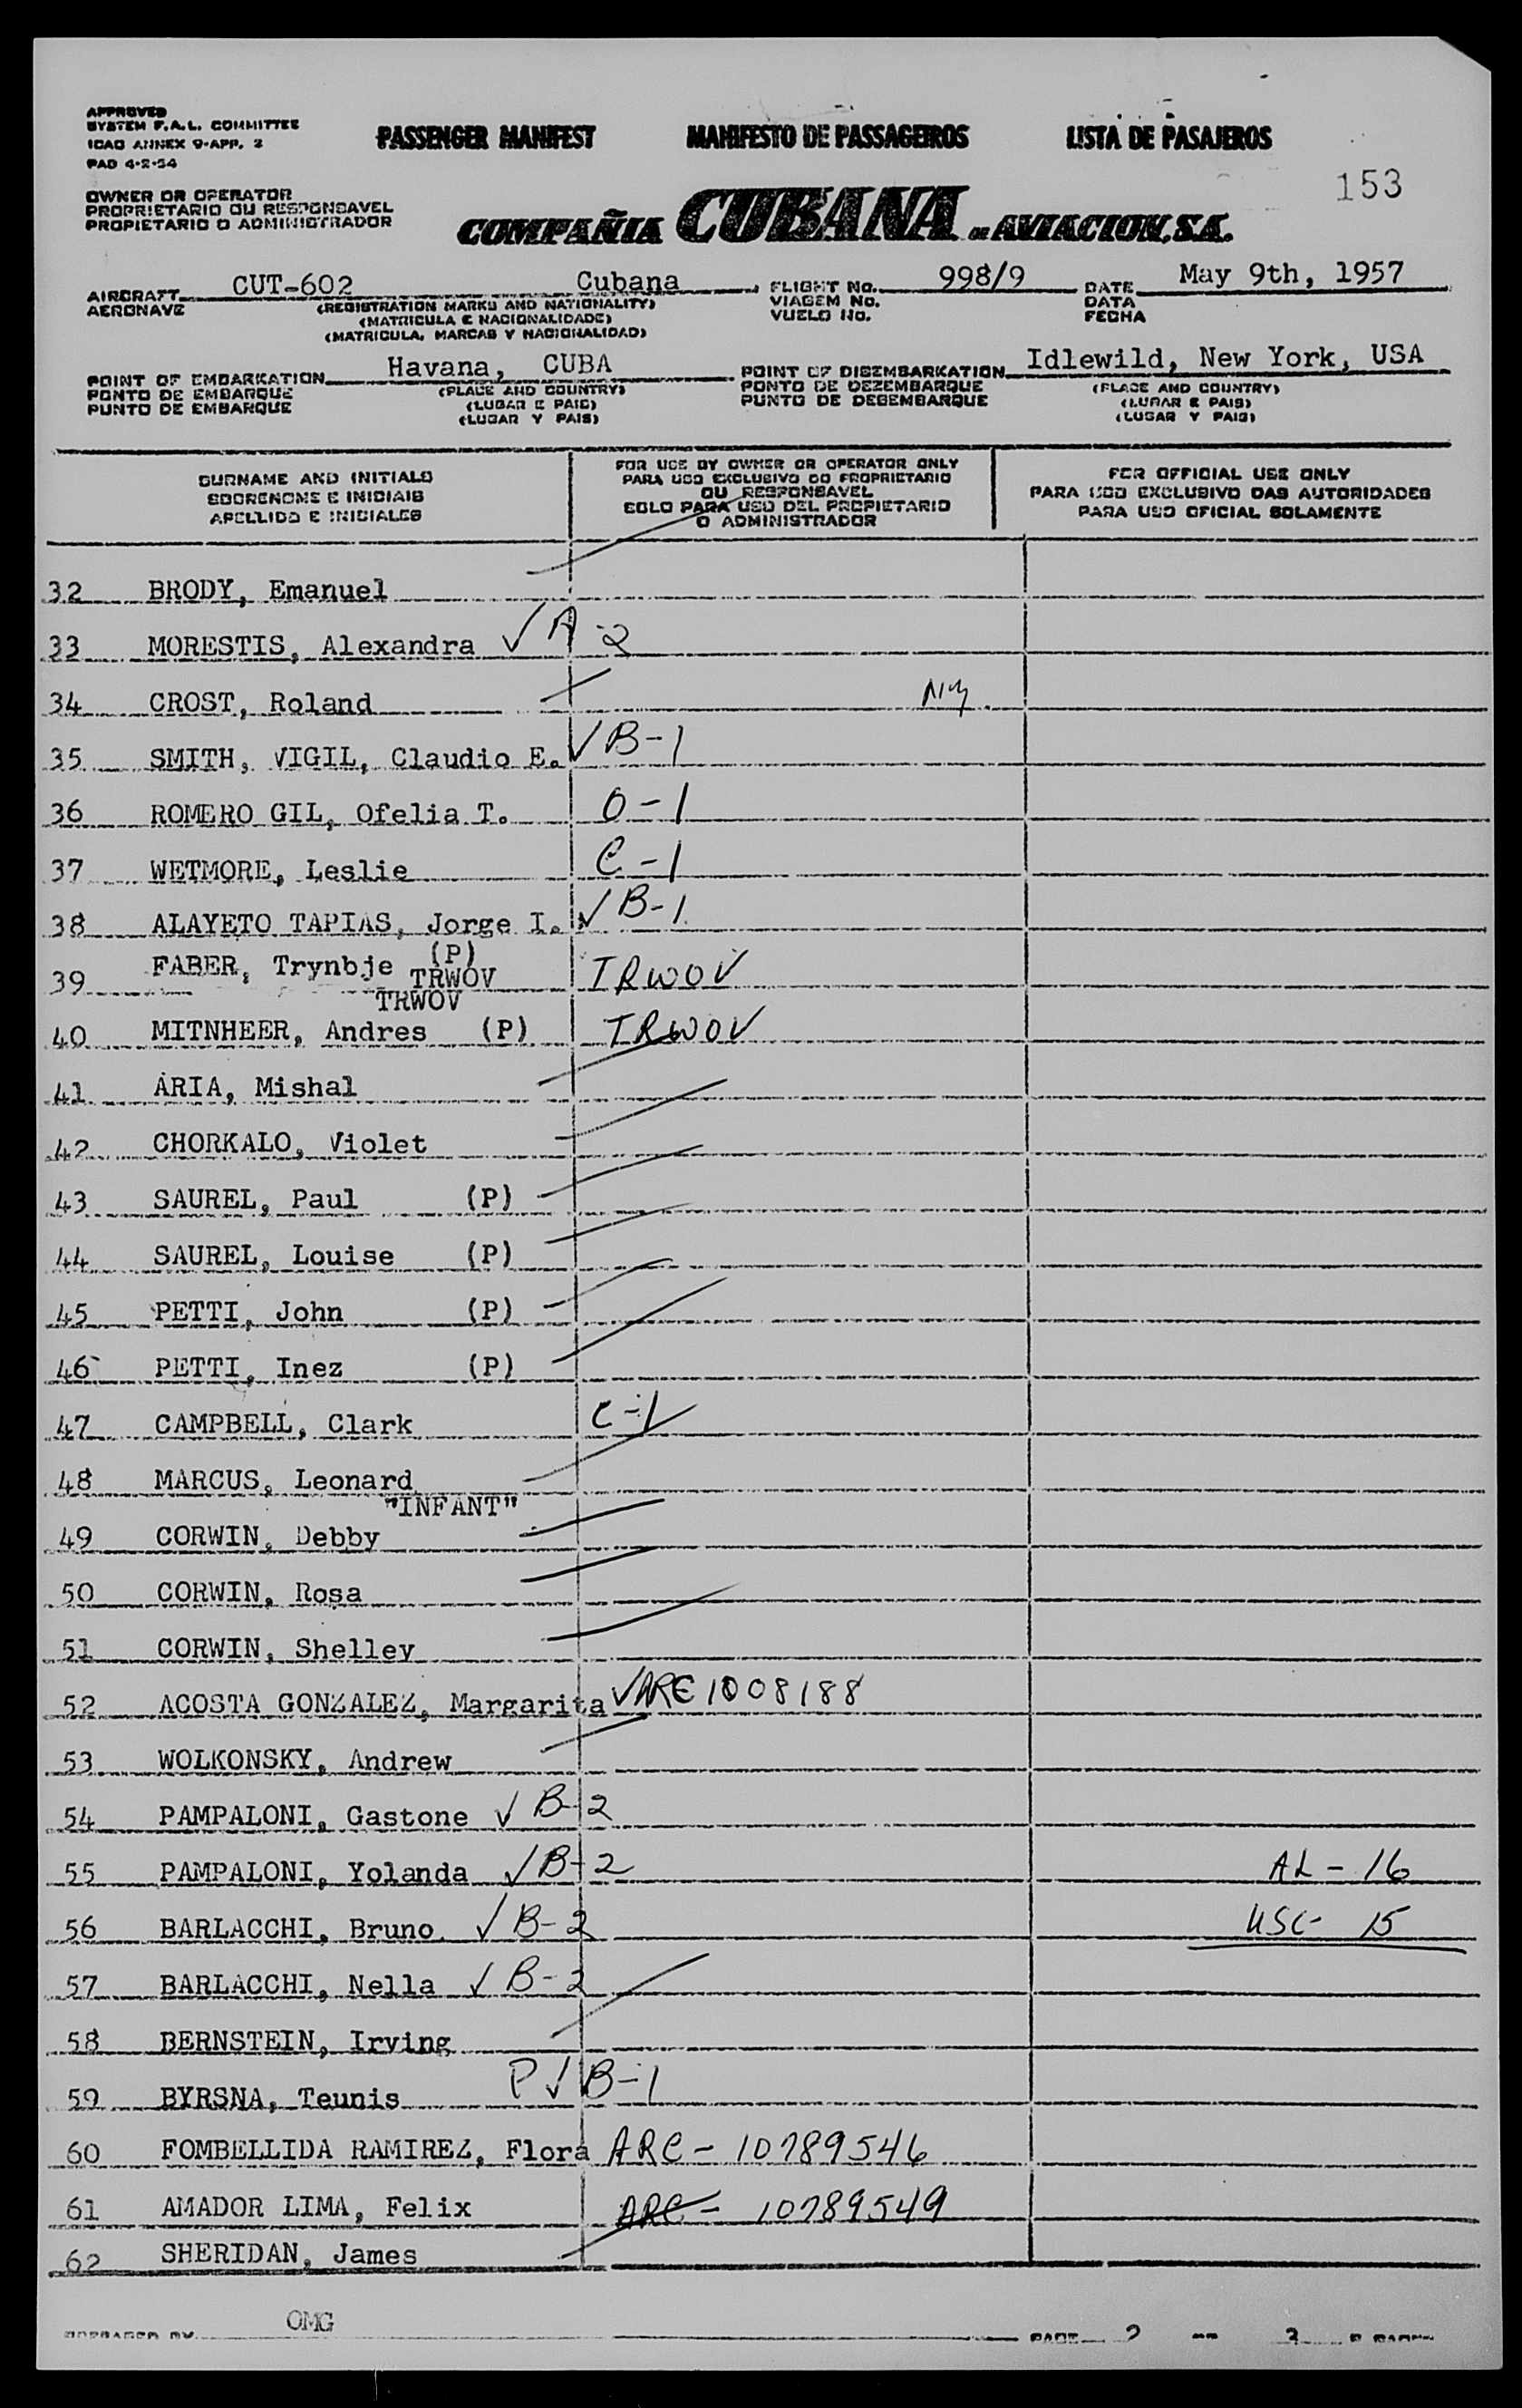 APPROVED
SYSTEM F.A.L. COMMITTEE
ICAO ANNEX 9-APP. 2
PAD 4-2-54
PASSENGER MANIFEST MANIFESTO DE PASSAGEIROS LISTA DE PASAJEROS
153
OWNER OR OPERATOR
PROPRIETARIO OU RESPONSAVEL
PROPIETARIO O ADMINISTRADOR
COMPAÑIA CUBANA DE AVIACION, S.A.
AIRCRAFT CUT-602 Cubana FLIGHT No. 998/9 DATE May 9th, 1957
AERONAVE (REGISTRATION MARKS AND NATIONALITY) VIAGEM No. DATA
(MATRICULA E NACIONALIDADE) VUELO No. FECHA
(MATRICULA, MARCAS Y NACIONALIDAD)
POINT OF EMBARKATION Havana, CUBA POINT OF DISEMBARKATION Idlewild, New York, USA
PONTO DE EMBARQUE (PLACE AND COUNTRY) PONTO DE DEZEMBARQUE (PLACE AND COUNTRY)
PUNTO DE EMBARQUE (LUGAR E PAIS) PUNTO DE DESEMBARQUE (LUGAR E PAIS)
(LUGAR Y PAIS) (LUGAR Y PAIS)
SURNAME AND INITIALS
SOBRENOME E INICIAIS
APELLIDO E INICIALES
FOR USE BY OWNER OR OPERATOR ONLY
PARA USO EXCLUSIVO DO PROPRIETARIO
OU RESPONSAVEL
SOLO PARA USO DEL PROPIETARIO
O ADMINISTRADOR
FOR OFFICIAL USE ONLY
PARA USO EXCLUSIVO DAS AUTORIDADES
PARA USO OFICIAL SOLAMENTE
32 BRODY, Emanuel
33 MORESTIS, Alexandra ✓ A-2
34 CROST, Roland
35 SMITH, VIGIL, Claudio E. ✓ B-1
36 ROMERO GIL, Ofelia T. O-1
37 WETMORE, Leslie C-1
38 ALAYETO TAPIAS, Jorge I. ✓ B-1
39 FABER, Trynbje (P) TRWOV TRWOV
TRWOV
40 MITNHEER, Andres (P) TRWOV
41 ARIA, Mishal
42 CHORKALO, Violet
43 SAUREL, Paul (P)
44 SAUREL, Louise (P)
45 PETTI, John (P)
46 PETTI, Inez (P)
47 CAMPBELL, Clark C-1
48 MARCUS, Leonard
"INFANT"
49 CORWIN, Debby
50 CORWIN, Rosa
51 CORWIN, Shelley
52 ACOSTA GONZALEZ, Margarita ✓ ARC 1008188
53 WOLKONSKY, Andrew
54 PAMPALONI, Gastone ✓ B-2
55 PAMPALONI, Yolanda ✓ B-2 AL-16
56 BARLACCHI, Bruno ✓ B-2 USC- 15
57 BARLACCHI, Nella ✓ B-2
58 BERNSTEIN, Irving
59 BYRSNA, Teunis P ✓ B-1
60 FOMBELLIDA RAMIREZ, Flora ARC- 10789546
61 AMADOR LIMA, Felix ARC- 10789549
62 SHERIDAN, James
PREPARED BY OMG PAGE 2 OF 3 PAGES